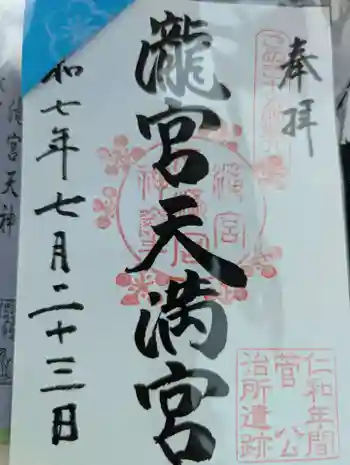 奉拝
瀧宮天満宮
仁和年間
菅公
治所遺跡
和七年七月二十三日
滝宮天神